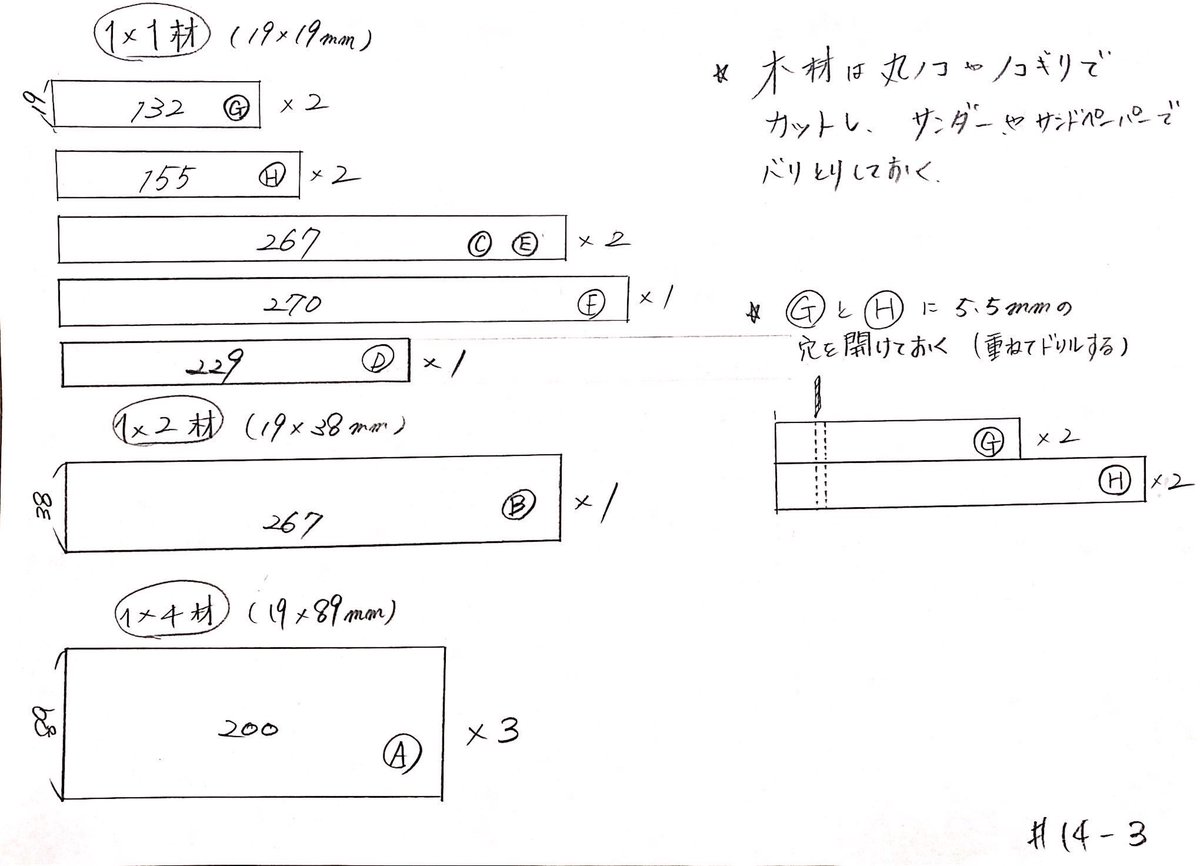 1×1材 (19×19mm)
19
132 G ×2
155 H ×2
267 C E ×2
270 F ×1
229 D ×1
1×2材 (19×38mm)
38
267 B ×1
1×4材 (19×89mm)
89
200 A ×3
☆ 木材は丸ノコやノコギリで
カットし、サンダーやサンドペーパーで
バリとりしておく.
☆ GとHに5.5mmの
穴を開けておく(重ねてドリルする)
G ×2
H ×2
#14-3